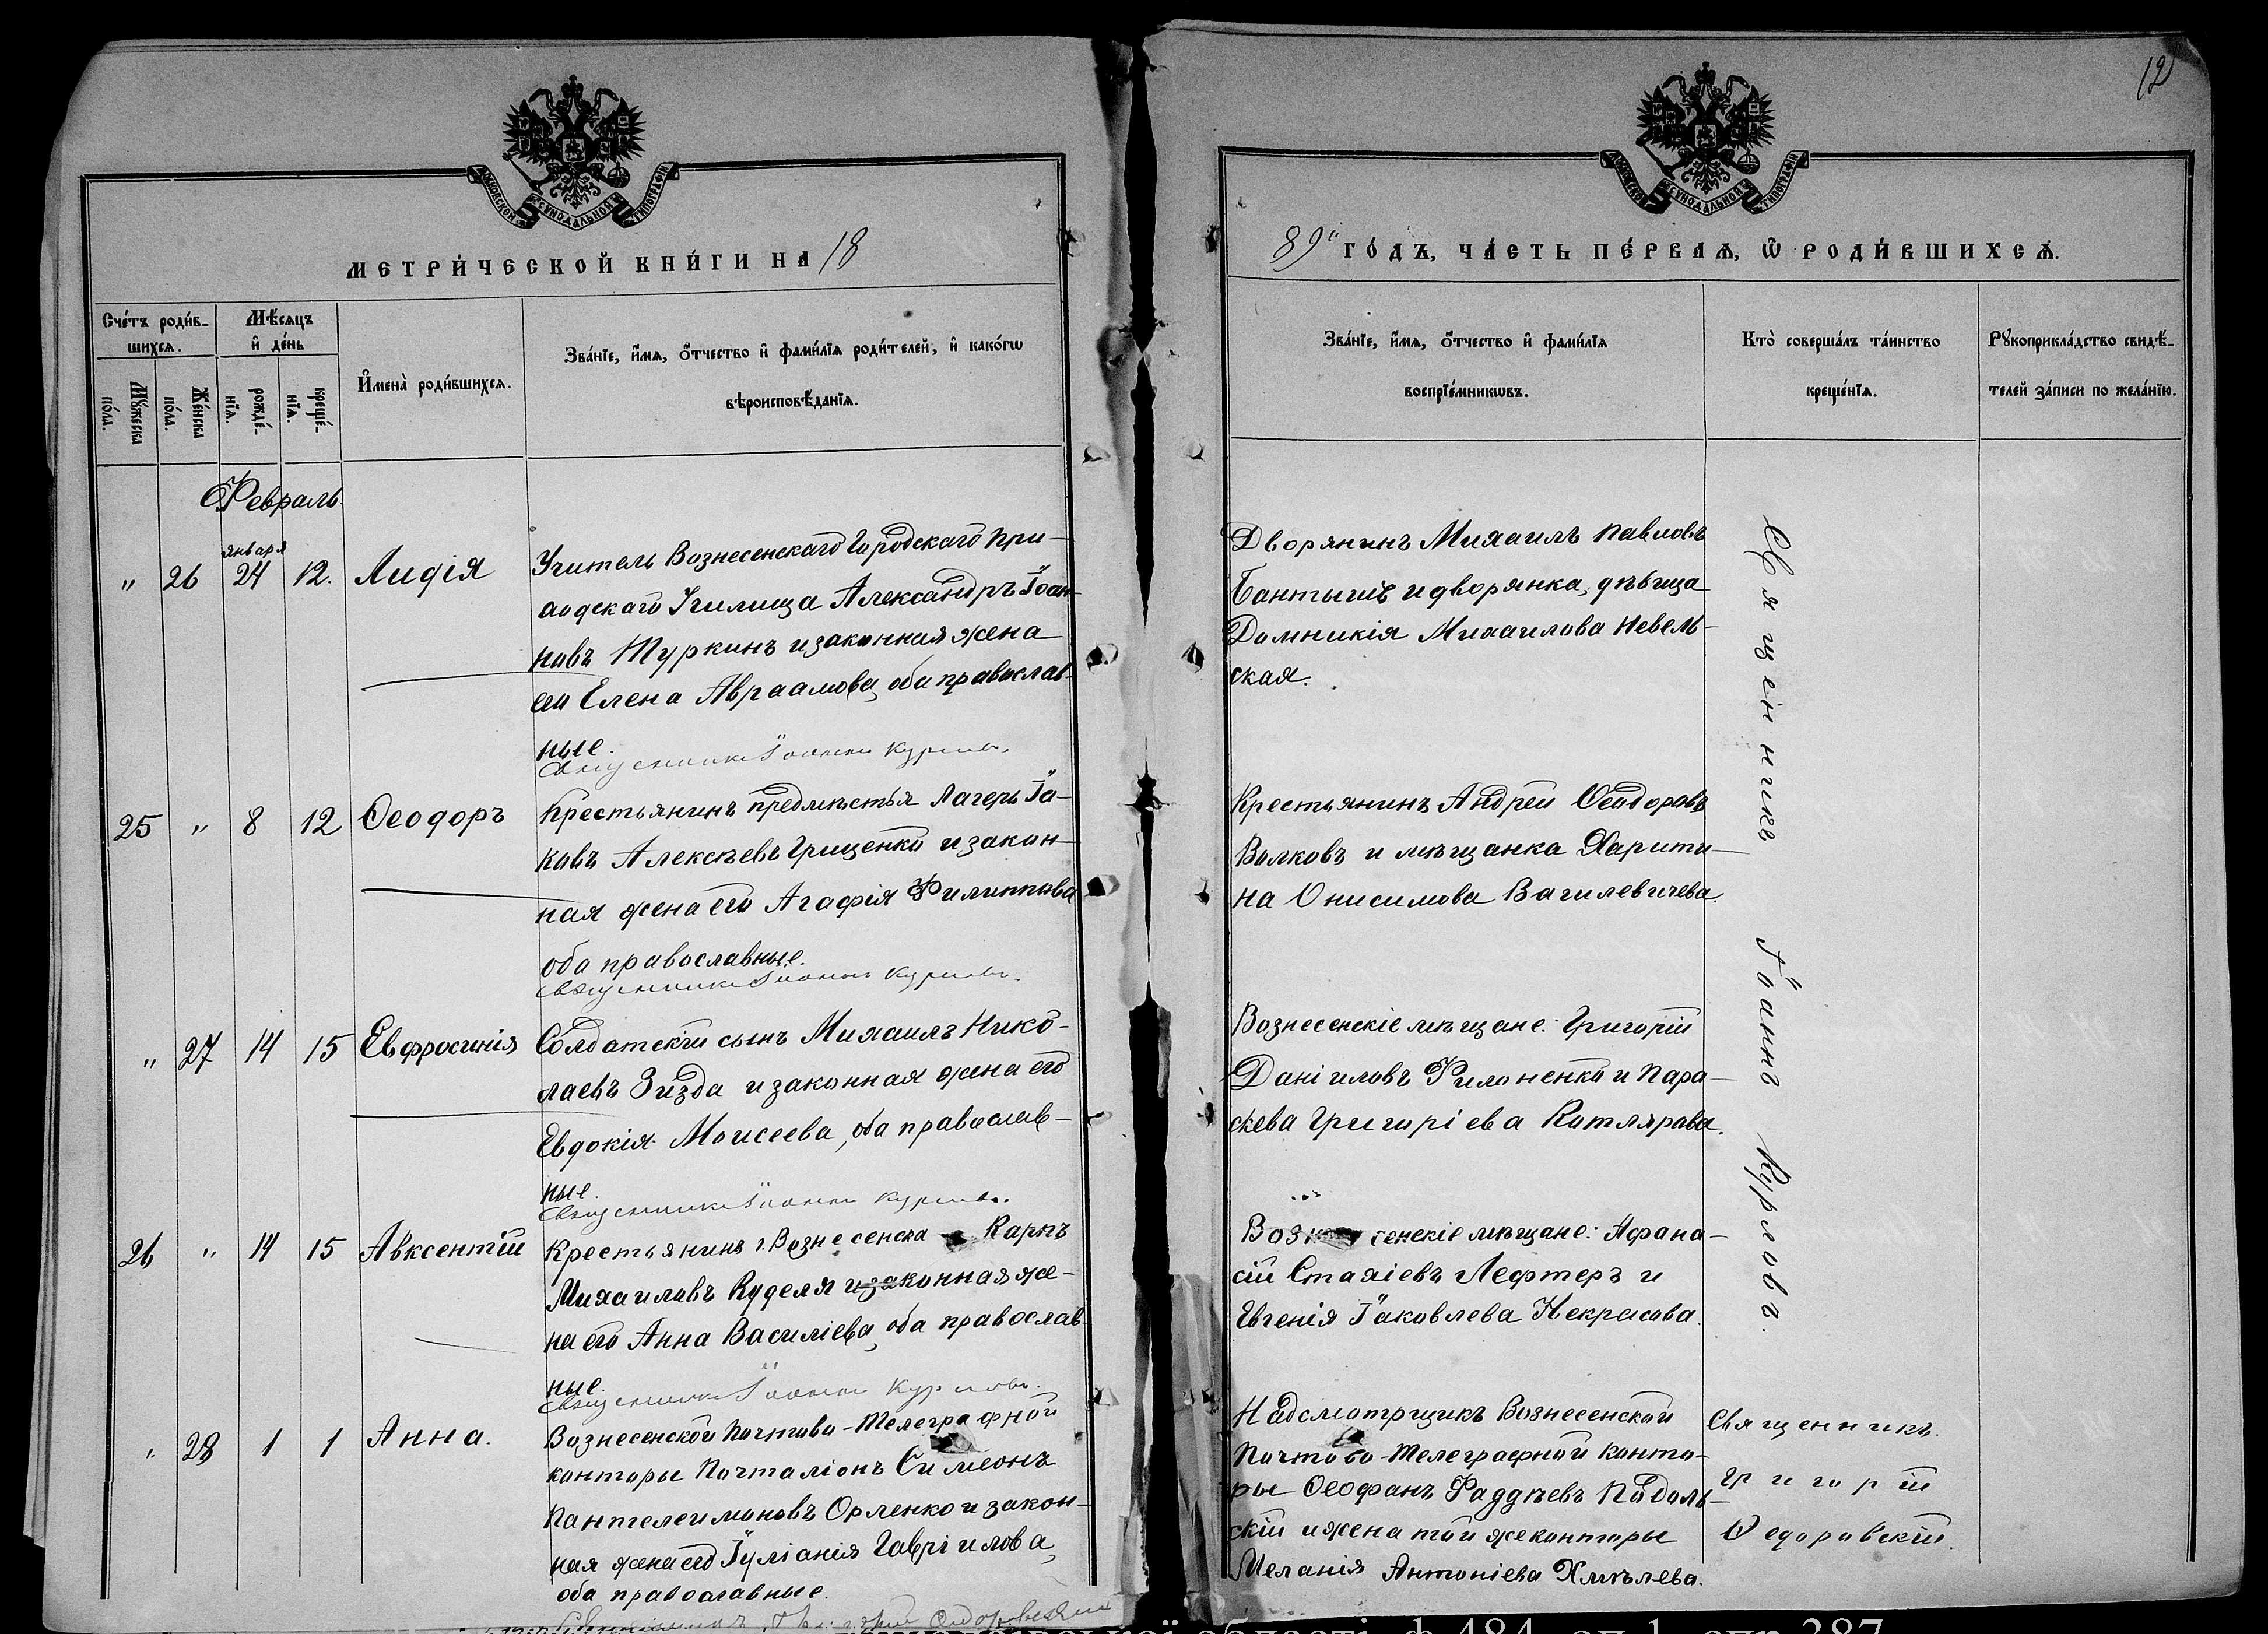 12
МЕТРИ́ЧЕСКОЙ КНИ́ГИ НА 18
89 ГО́ДЪ, ЧА́СТЬ ПЕ́РВАѦ, Ѿ РОДИ́ВШИХСѦ.
Сче́тъ роди́в-
шихсѧ.
Мѣ́сѧцъ
и҆ де́нь
Мꙋ́жеска
по́ла.
Же́нска
по́ла.
рожде́-
нїѧ.
креще́-
нїѧ.
И҆мена̀ роди́вшихсѧ.
Зва́нїе, и҆́мѧ, ѻ҆́тчество и҆ фами́лїѧ роди́телей, и҆ како́гѡ
вѣроисповѣ́данїѧ.
Зва́нїе, и҆́мѧ, ѻ҆́тчество и҆ фами́лїѧ
воспрїе́мникѡвъ.
Кто̀ соверша́лъ та́инство
креще́нїѧ.
Рꙋкоприкла́дство свидѣ́-
телей за́писи по жела́нїю.
Февраль
января
" 26 24 12. Лидія
Учитель Вознесенскаго Городскаго При-
ходскаго Училища Александръ Іоан-
новъ Туркинъ и законная жена
его Елена Авраамова, оба православ-
ные.
Священникъ Іоаннъ Курловъ.
Дворянинъ Михаилъ Павловъ
Бантышъ и дворянка, дѣвица
Домникія Михаилова Невель-
ская.
25 " 8 12 Ѳеодоръ
Крестьянинъ предмѣстья Лагерь Іа-
ковъ Алексѣевъ Грищенко и закон-
ная жена его Агафія Филиппова
оба православные.
Священникъ Іоаннъ Курловъ.
Крестьянинъ Андрей Ѳеодоровъ
Волковъ и мѣщанка Харити-
на Онисимова Вагилевичева.
" 27 14 15 Евфросинія
Солдатскій сынъ Михаилъ Нико-
лаевъ Зизда и законная жена его
Евдокія Моисеева, оба православ-
ные.
Священникъ Іоаннъ Курловъ.
Вознесенскіе мѣщане: Григорій
Даніиловъ Филоненко и Пара-
скева Григоріева Котлярова.
26 " 14 15 Авксентій
Крестьянинъ г. Вознесенска Карпъ
Михаиловъ Куделя и законная же-
на его Анна Василіева, оба православ-
ные.
Священникъ Іоаннъ Курловъ.
Вознесенскіе мѣщане: Афана-
сій Стахіевъ Лефтеръ и
Евгенія Іаковлева Некрасова.
Священникъ Іоаннъ Курловъ.
" 28 1 1 Анна.
Вознесенской Почтово-Телеграфной
конторы Почталіонъ Симеонъ
Пантелеимоновъ Орленко и закон-
ная жена его Іуліанія Гавріилова,
оба православные.
Священникъ Григорій Ѳедоровскій
Надсмотрщикъ Вознесенской
Почтово-Телеграфной Конто-
ры Ѳеофанъ Фаддѣевъ Подоль-
скій и жена той же конторы
Меланія Антоніева Хмѣлева.
Священникъ
Григорій
Ѳедоровскій.
області, ф.484, оп.1, спр.387